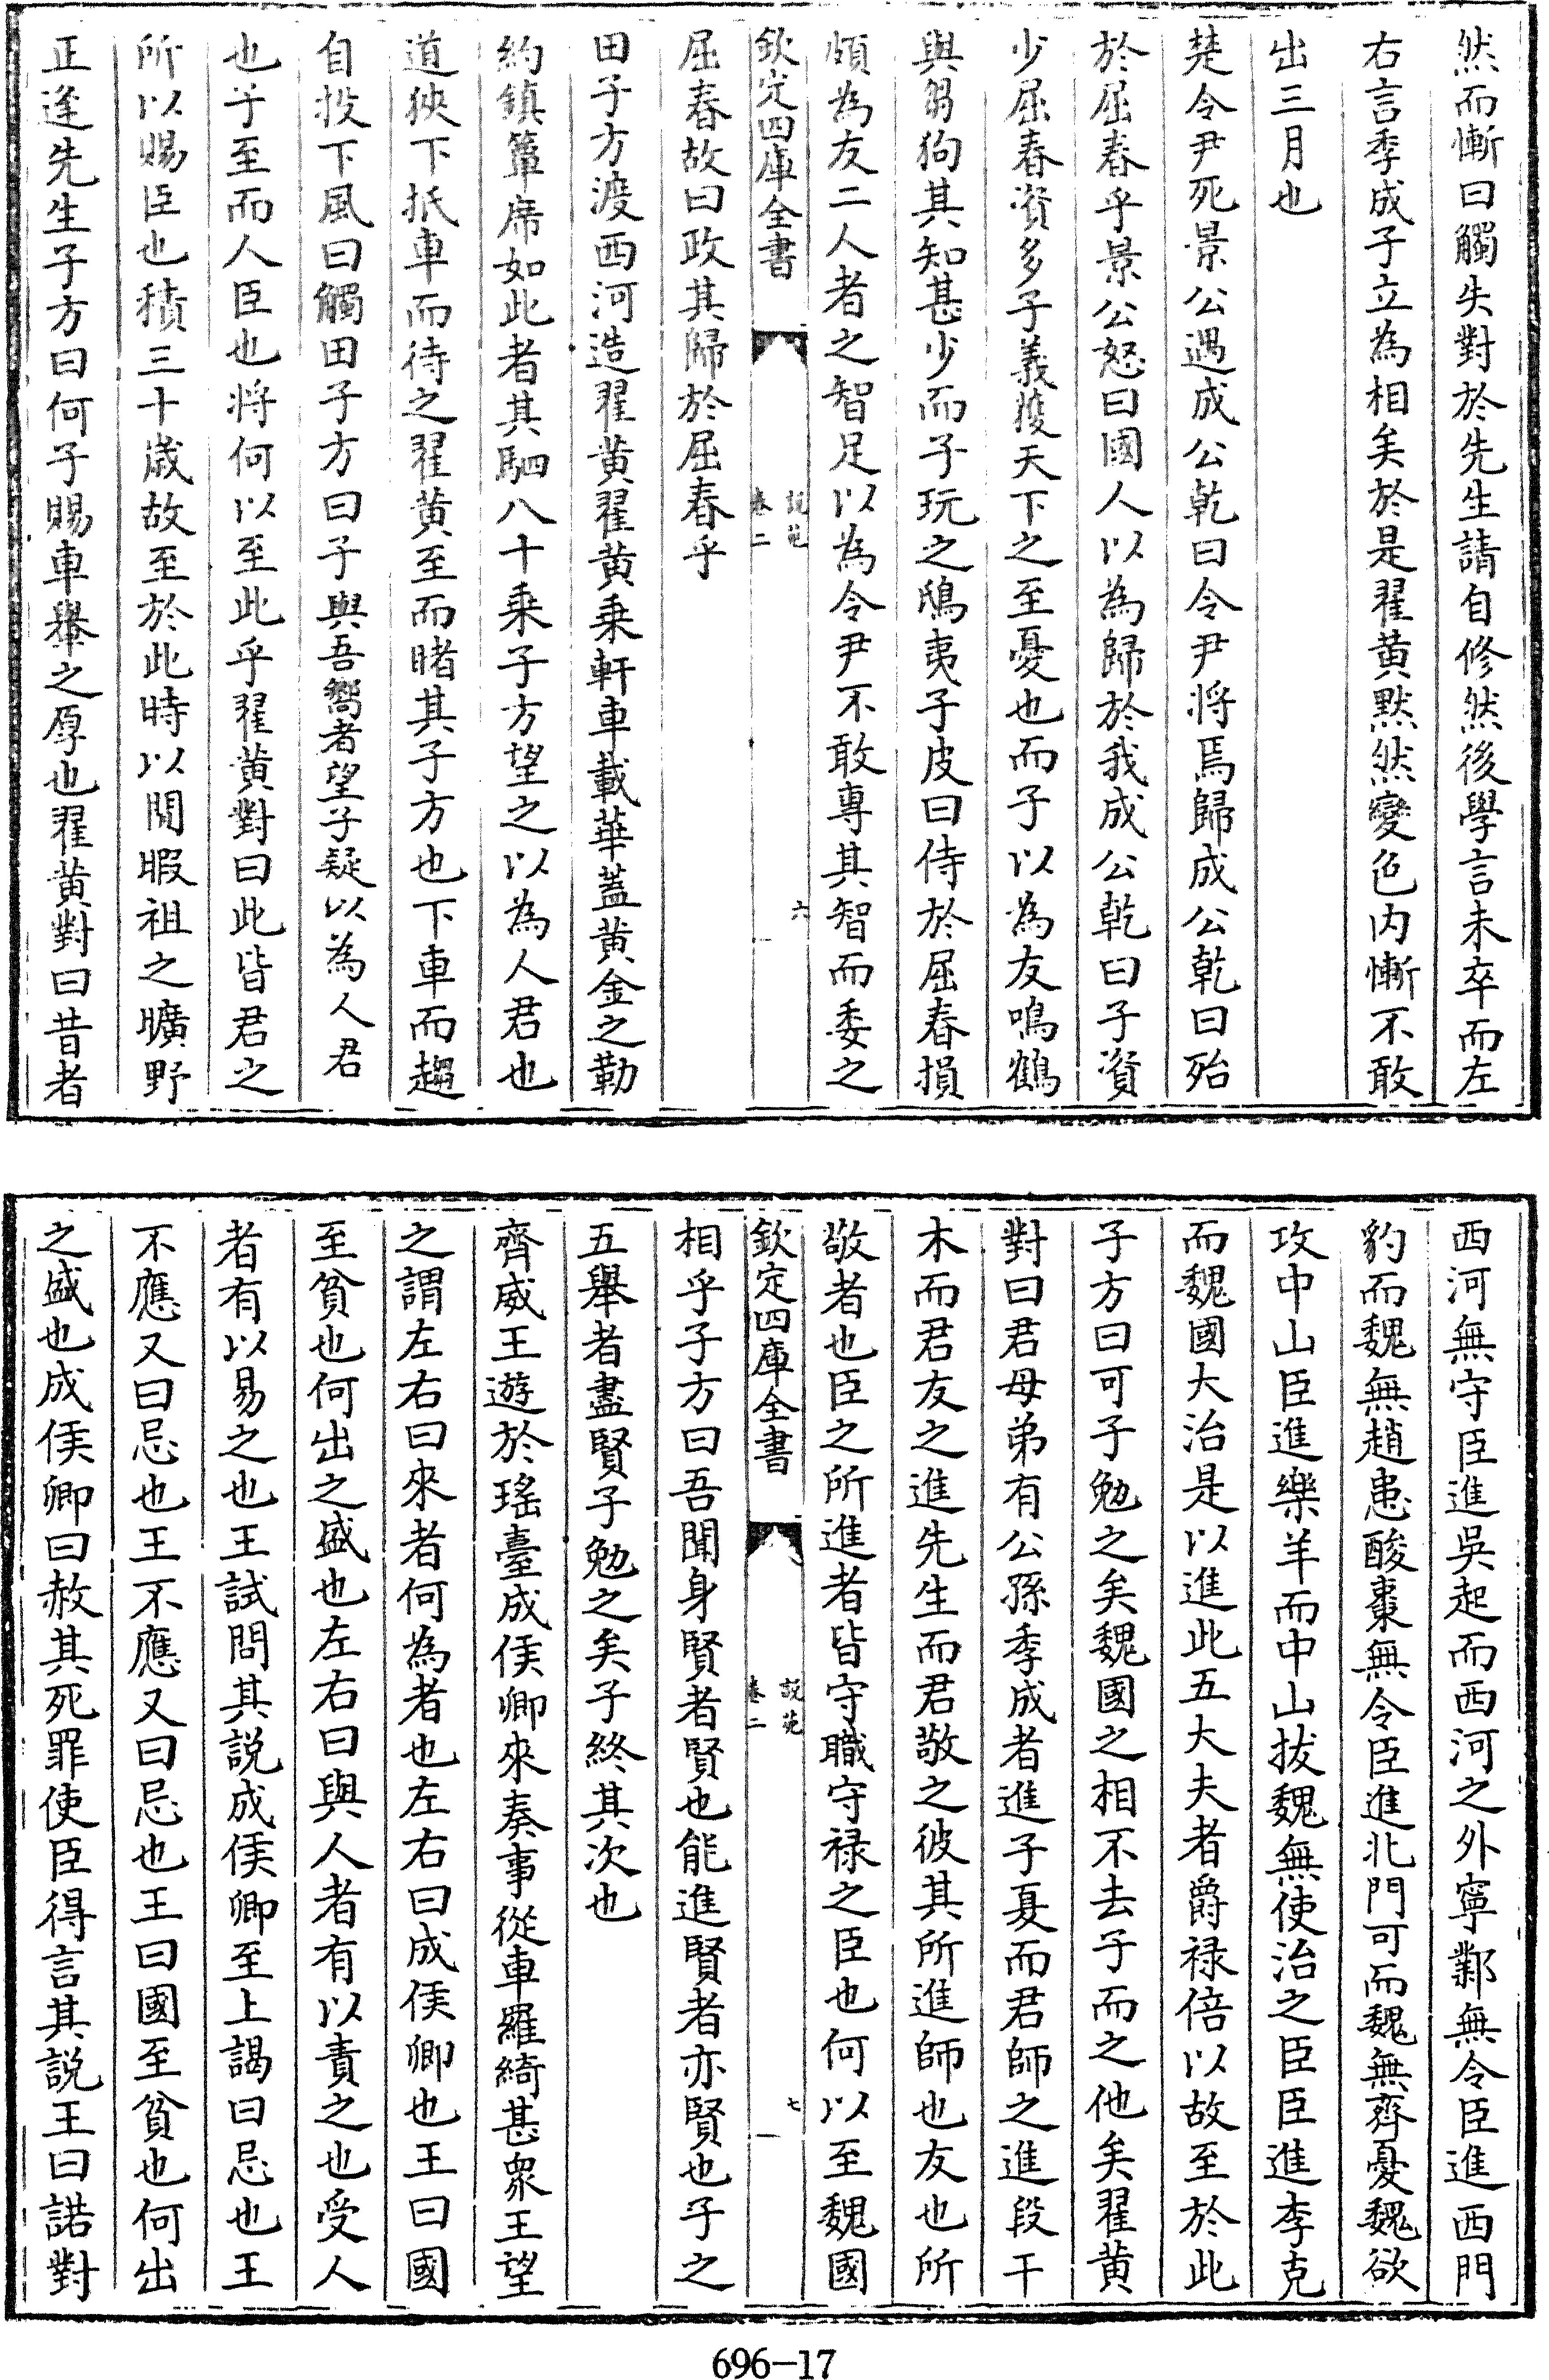 然而慚曰觸失對於先生請自修然後學言未卒而左
右言季成子立為相矣於是翟黄黙然變色内慚不敢
出三月也
楚令尹死景公遇成公乾曰令尹將焉歸成公乾曰殆
於屈春乎景公怒曰國人以為歸於我成公乾曰子資
少屈春資多子義獲天下之至憂也而子以為友鳴鶴
與芻狗其知甚少而子玩之鴟夷子皮曰侍於屈春損
頗為友二人者之智足以為令尹不敢專其智而委之
欽定四庫全書
說苑
卷二
六
屈春故曰政其歸於屈春乎
田子方渡西河造翟黄翟黄乗軒車載華蓋黄金之勒
約鎮簟席如此者其駟八十乗子方望之以為人君也
道狹下抵車而待之翟黄至而睹其子方也下車而趨
自投下風曰觸田子方曰子與吾嚮者望子疑以為人君
也子至而人臣也將何以至此乎翟黄對曰此皆君之
所以賜臣也積三十歳故至於此時以閒暇祖之曠野
正逢先生子方曰何子賜車轝之厚也翟黄對曰昔者
西河無守臣進吳起而西河之外寧鄴無令臣進西門
豹而魏無趙患酸棗無令臣進北門可而魏無齊憂魏欲
攻中山臣進樂羊而中山拔魏無使治之臣臣進李克
而魏國大治是以進此五大夫者爵禄倍以故至於此
子方曰可子勉之矣魏國之相不去子而之他矣翟黄
對曰君母弟有公孫季成者進子夏而君師之進段干
木而君友之進先生而君敬之彼其所進師也友也所
敬者也臣之所進者皆守職守禄之臣也何以至魏國
欽定四庫全書
說苑
卷二
七
相乎子方曰吾聞身賢者賢也能進賢者亦賢也子之
五舉者盡賢子勉之矣子終其次也
齊威王遊於瑤臺成侯卿來奏事從車羅綺甚衆王望
之謂左右曰來者何為者也左右曰成侯卿也王曰國
至貧也何出之盛也左右曰與人者有以責之也受人
者有以易之也王試問其說成侯卿至上謁曰忌也王
不應又曰忌也王不應又曰忌也王曰國至貧也何出
之盛也成侯卿曰赦其死罪使臣得言其說王曰諾對
696-17